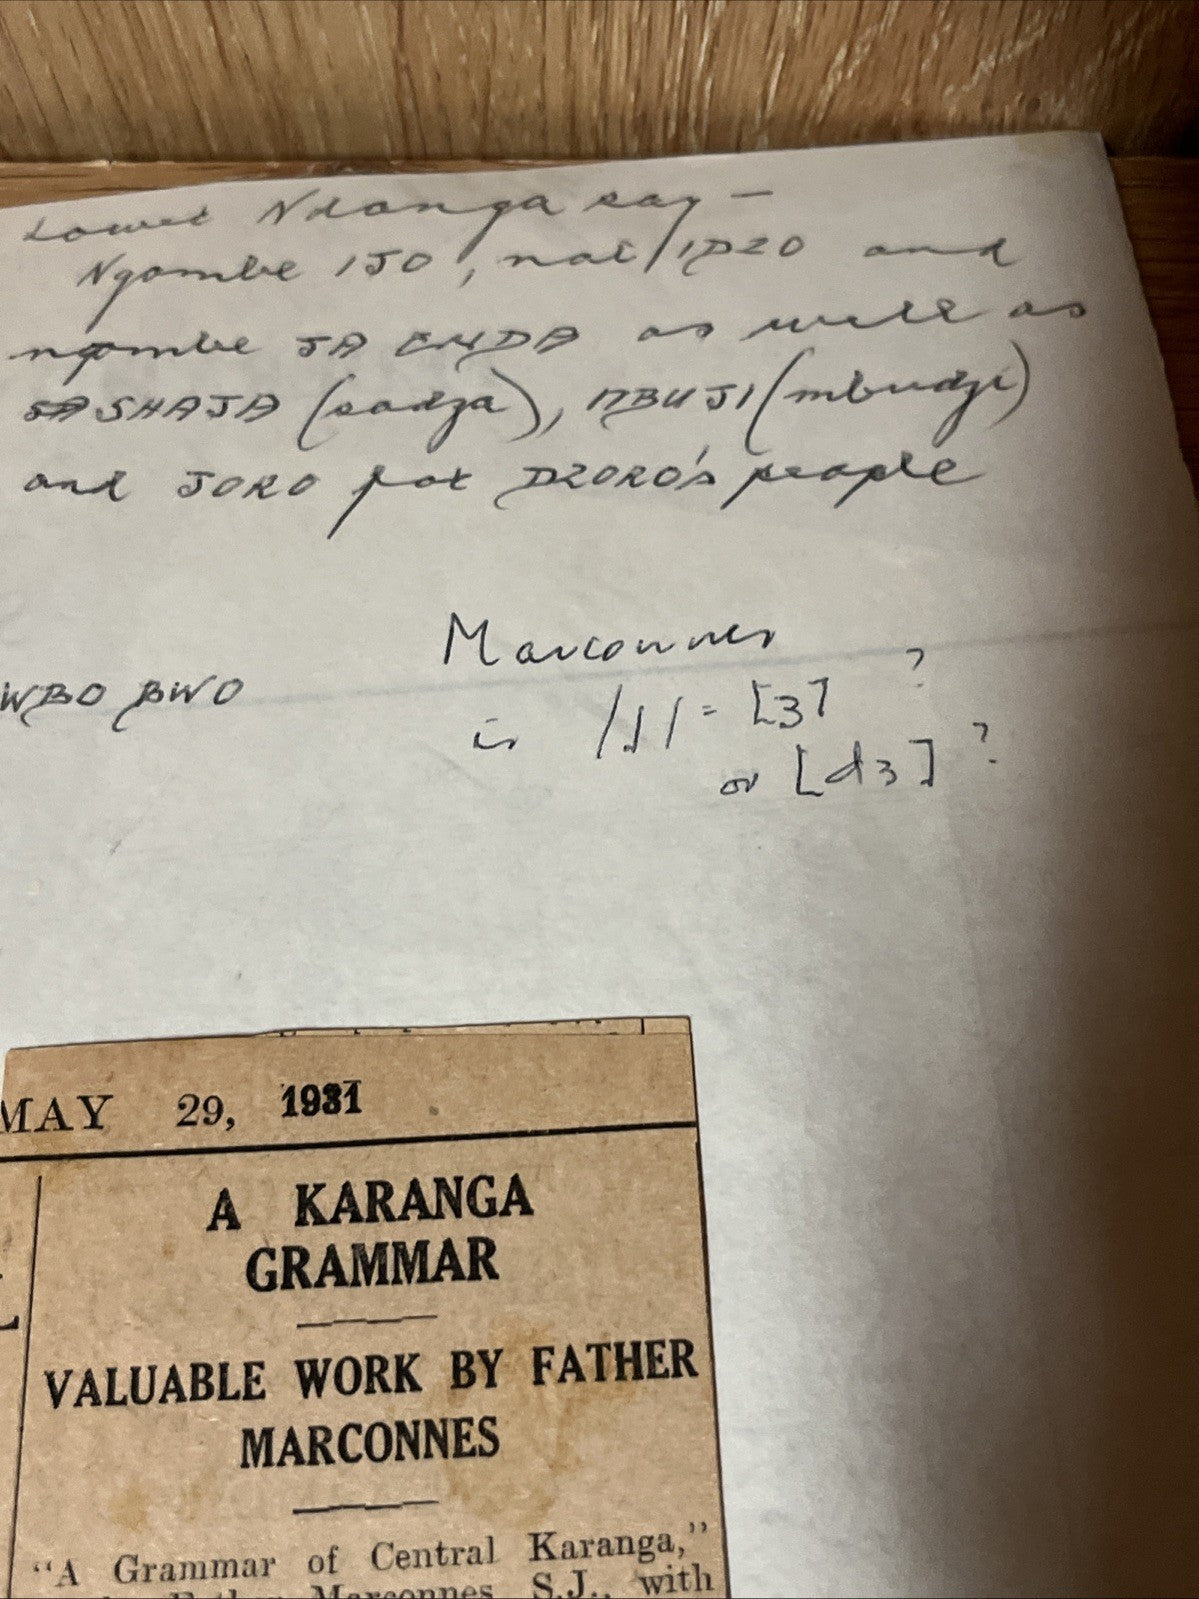 Lower Ndanga say –
Ngombe IJO, not IDZO and
ngombe JA ENDA as well as
SHAJA (sadza), MBUJI (mbudzi)
and JORO for DZORO's people
WBO BWO
Marconnes
is /J/ = [ʒ] ?
or [dʒ] ?
MAY 29, 1931
A KARANGA
GRAMMAR
VALUABLE WORK BY FATHER
MARCONNES
"A Grammar of Central Karanga,"
Father Marconnes, S.J., with